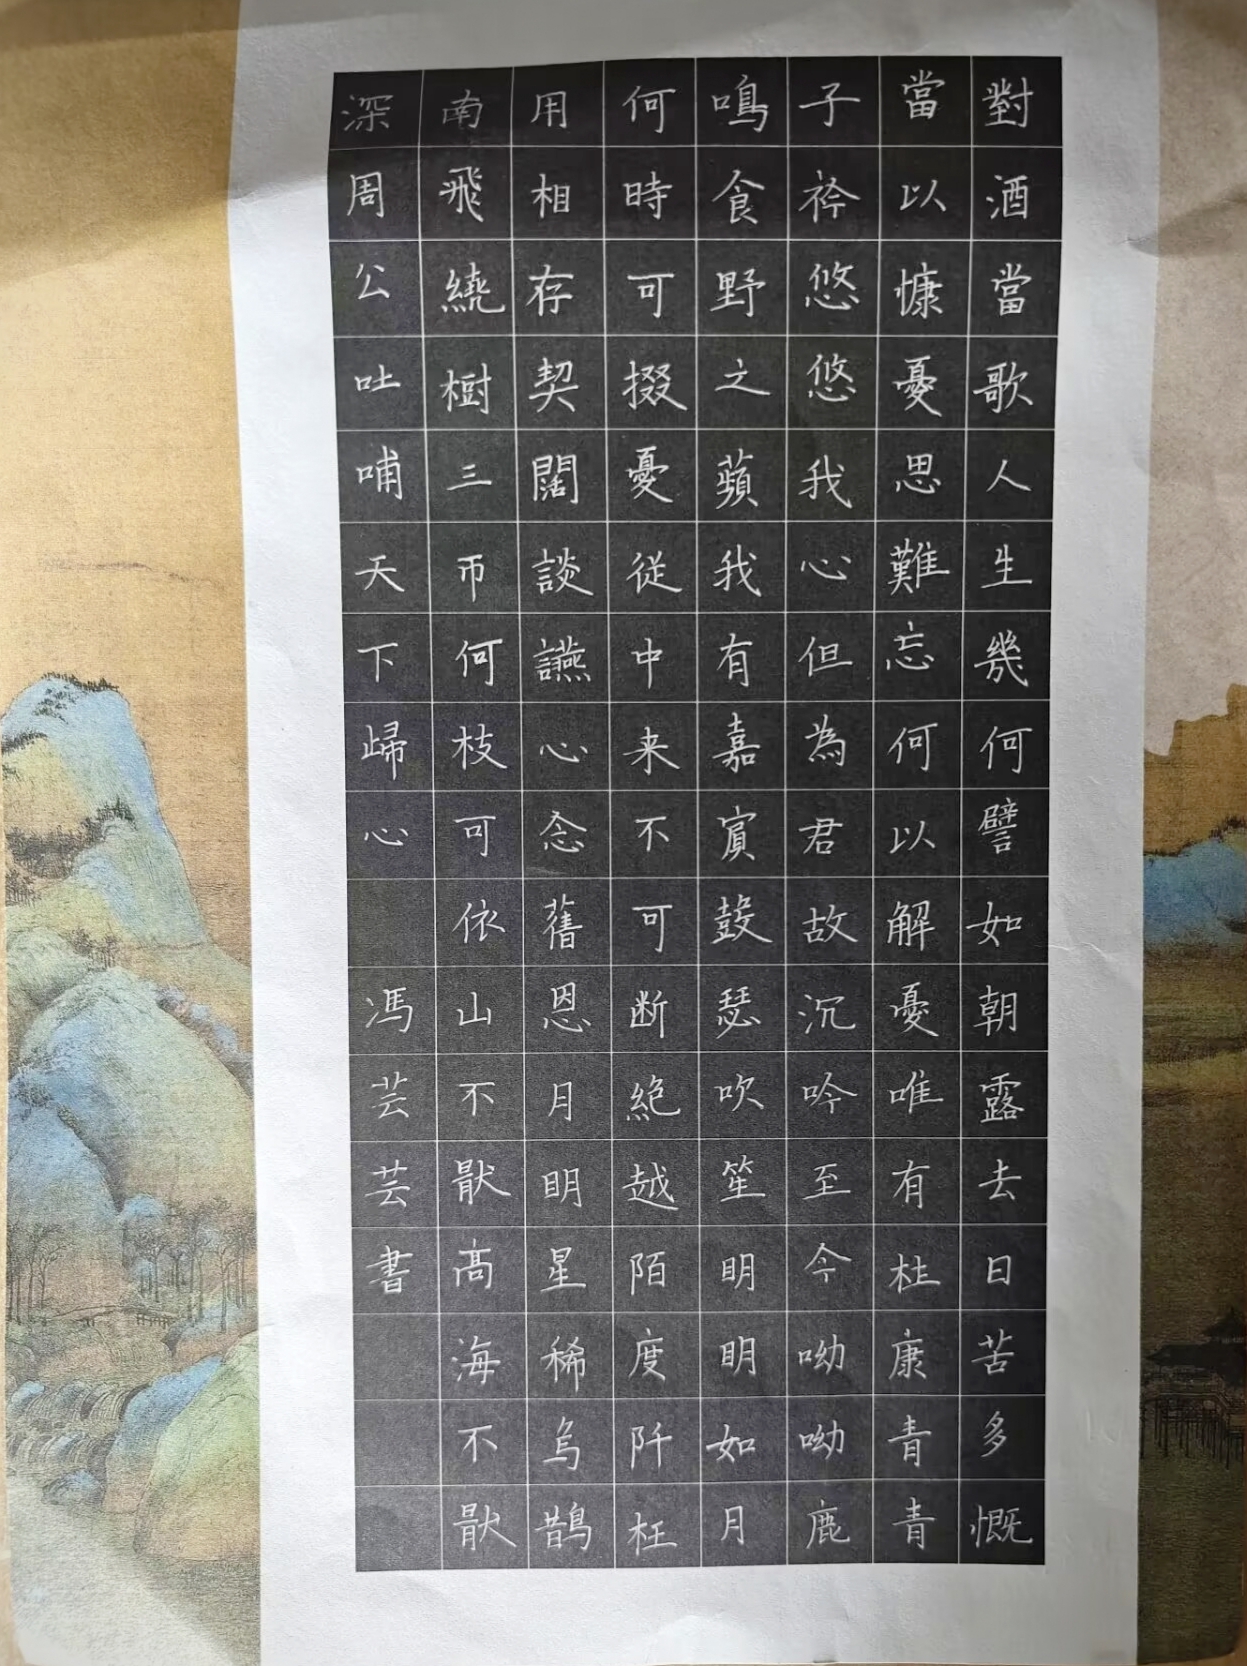 對酒當歌人生幾何譬如朝露去日苦多慨
當以慷憂思難忘何以解憂唯有杜康青青
子衿悠悠我心但為君故沉吟至今呦呦鹿
鳴食野之蘋我有嘉賔鼓瑟吹笙明明如月
何時可掇憂從中来不可断絶越陌度阡枉
用相存契闊談讌心念舊恩月明星稀烏鵲
南飛繞樹三帀何枝可依山不猒高海不猒
深周公吐哺天下歸心
馮芸芸書